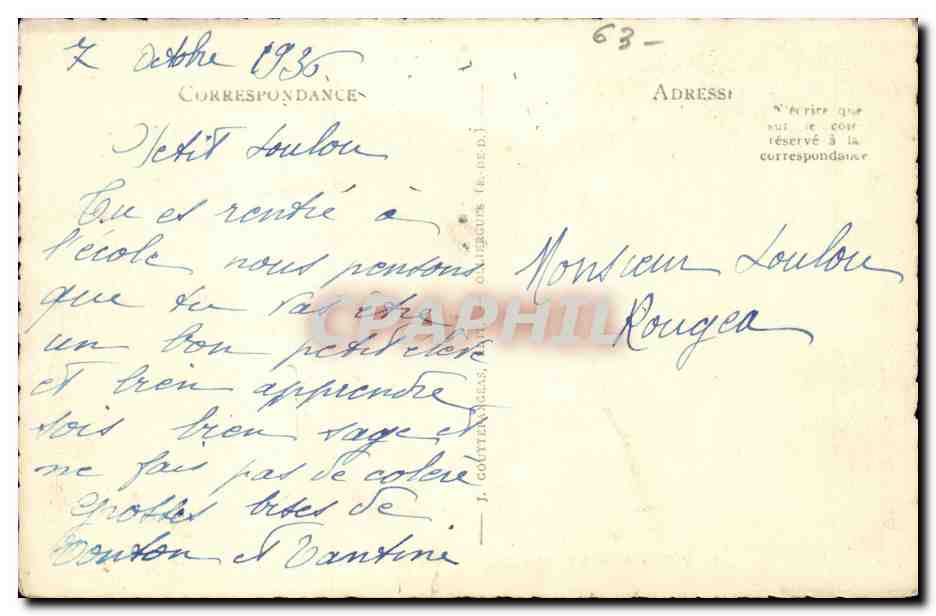 63-
7 Octobre 1936
CORRESPONDANCE
ADRESSE
N'écrire que
sur le côté
réservé à la
correspondance
Petit Loulou
Tu es rentré à
l'école nous pensons
que tu vas être
un bon petit élève
et bien apprendre
sois bien sage et
ne fais pas de colère
grosses bises de
Tonton et Tantine
Monsieur Loulou
Rougea
J. GOUTTEFANGEAS,
(P.-DE-D.)
CPAPHIL